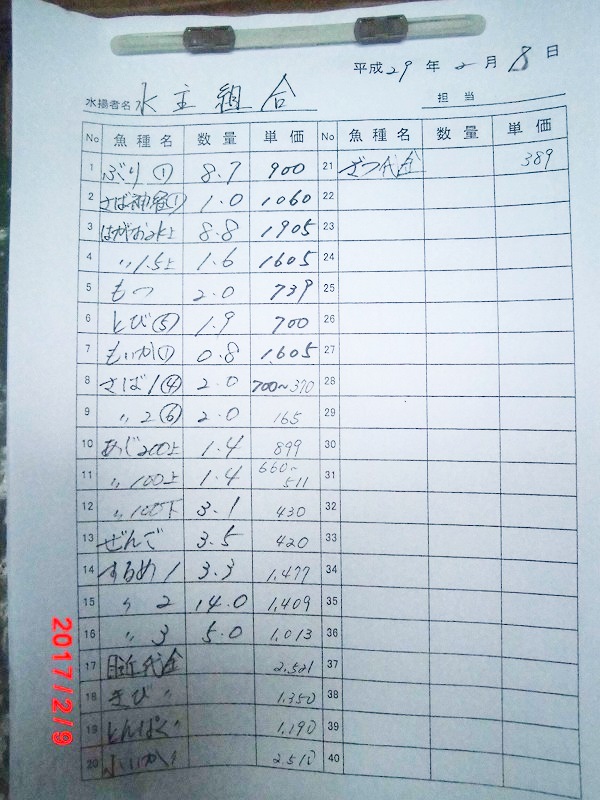 平成29年2月8日
水揚者名 水主組合 担当
No 魚種名 数量 単価 No 魚種名 数量 単価
1 ぶり① 8.7 900 21 ざつ代金 389
2 さば神宿① 1.0 1060 22
3 はがお2k上 8.8 1905 23
4 〃1.5上 1.6 1605 24
5 もつ 2.0 739 25
6 とび⑤ 1.9 700 26
7 もいか① 0.8 1.605 27
8 さば1④ 2.0 700~370 28
9 〃2⑥ 2.0 165 29
10 あじ200上 1.4 899 30
11 〃100上 1.4 660~511 31
12 〃100下 3.1 430 32
13 ぜんご 3.5 420 33
14 するめ1 3.3 1,477 34
15 〃2 14.0 1,409 35
16 〃3 5.0 1,013 36
17 目近代金 2,521 37
18 きび〃 1,350 38
19 とんぱく〃 1,190 39
20 2,510 40
2017/2/9